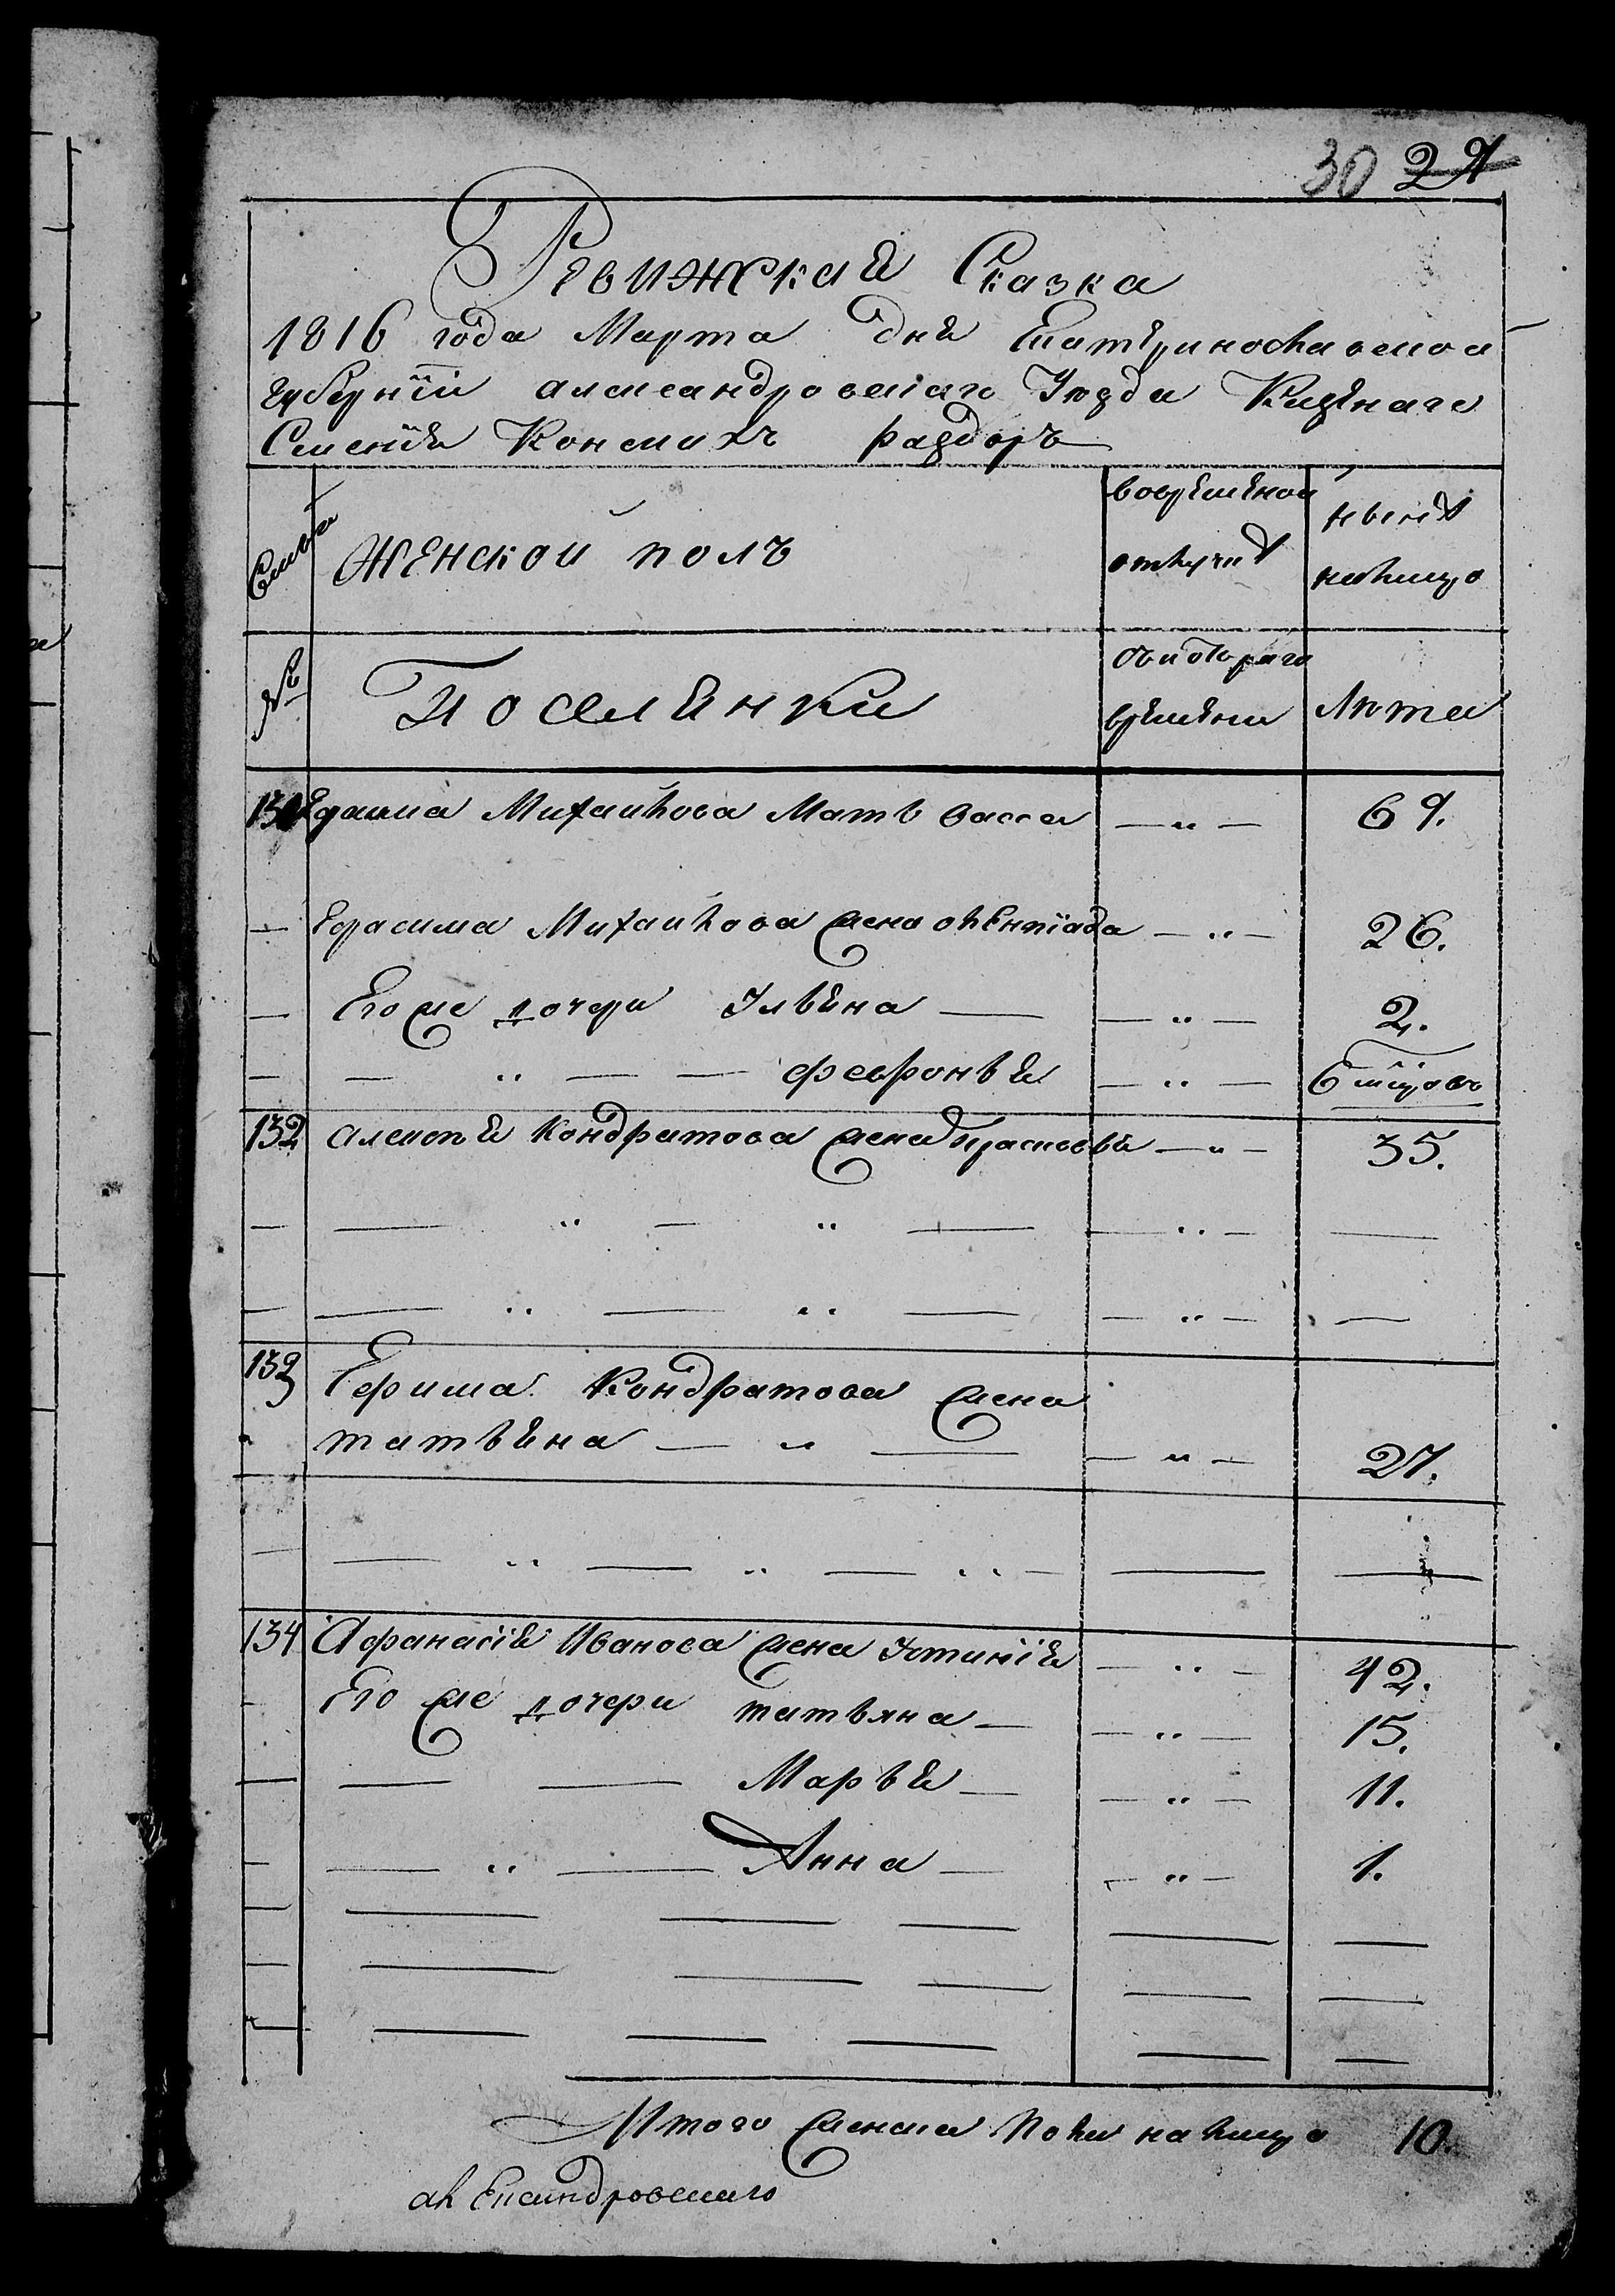 30 29
Ревижская Сказка
1816 года Марта дня Екатеринославской
губернїи александровскаго Уѣзда Казенаго
Селенїя Конскихъ раздоръ
Семьи
Женской полъ
вовремяной
отлучкѣ
нынѣ
налицо
№
Поселянки
съ которого
времени
Лѣта
131 Гераима Михайлова Мать васса — „ — 69.
— Герасима Михайлова жена олемпїада — „ — 26.
— Его же дочери Ульяна — — „ — 2.
— — „ — — февронья — „ — 6 мѣсяцовъ
132 алексея Кондратова жена Прасковья — „ — 35.
— — „ — „ — — „ — —
— — „ — „ — — „ — —
133 Ефима Кондратова жена
татьяна — „ — — „ — 27.
— — „ — „ — „ — — —
134 Афанасїя Иванова жена Устинїя — „ — 42.
— Его же дочери татьяна — — „ — 15.
— — — Марья — — „ — 11.
— — „ — Анна — — „ — 1.
Итого женска пола налицо 10.
александровскаго